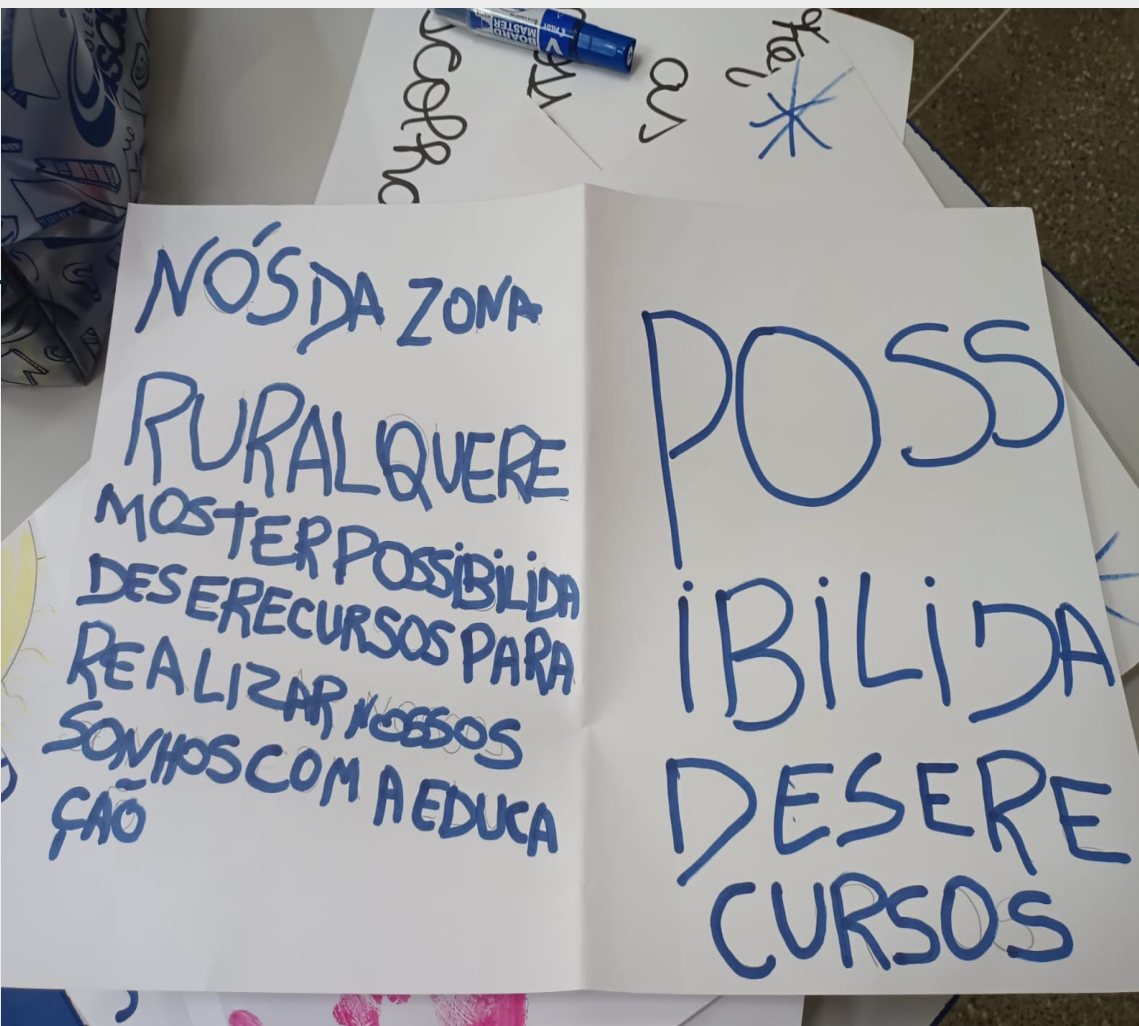 BOARD
MASTER
PILOT
as
NÓS DA ZONA
RURAL QUERE
MOS TER POSSIBILIDA
DES E RECURSOS PARA
REALIZAR NOSSOS
SONHOS COM A EDUCA
ÇÃO
POSS
IBILIDA
DES E RE
CURSOS